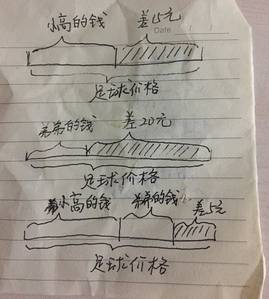 小高的钱 差15元
Date
足球价格
弟的钱 差20元
足球价格
小高的钱 弟的钱 差5元
足球价格